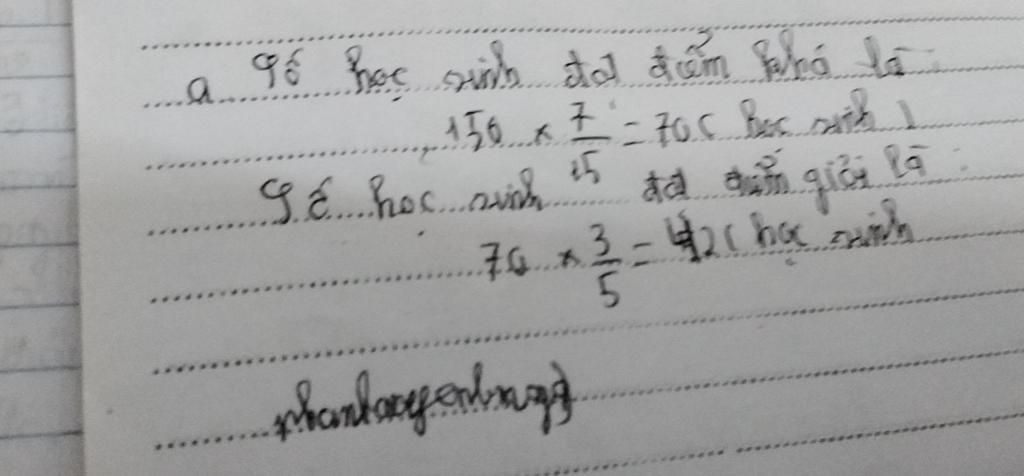 a Số học sinh đạt điểm khá là
150 × 7/15 = 70 ( học sinh )
Số học sinh đạt điểm giỏi là :
70 × 3/5 = 42 ( học sinh